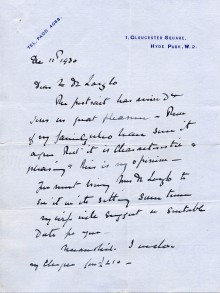 TEL. PADD. 4088.
1, GLOUCESTER SQUARE,
HYDE PARK, W.2.
Dec 11th 1930
Dear Mr de Laszlo
The portrait has arrived &
gives us great pleasure – Those
of my family who have seen it
agree that it is characteristic &
pleasing & this is my opinion –
You must bring Mrs de Laszlo to
see it in its setting some time
my wife will suggest a suitable
date for you –
Meanwhile I enclose
my cheque for £210 –